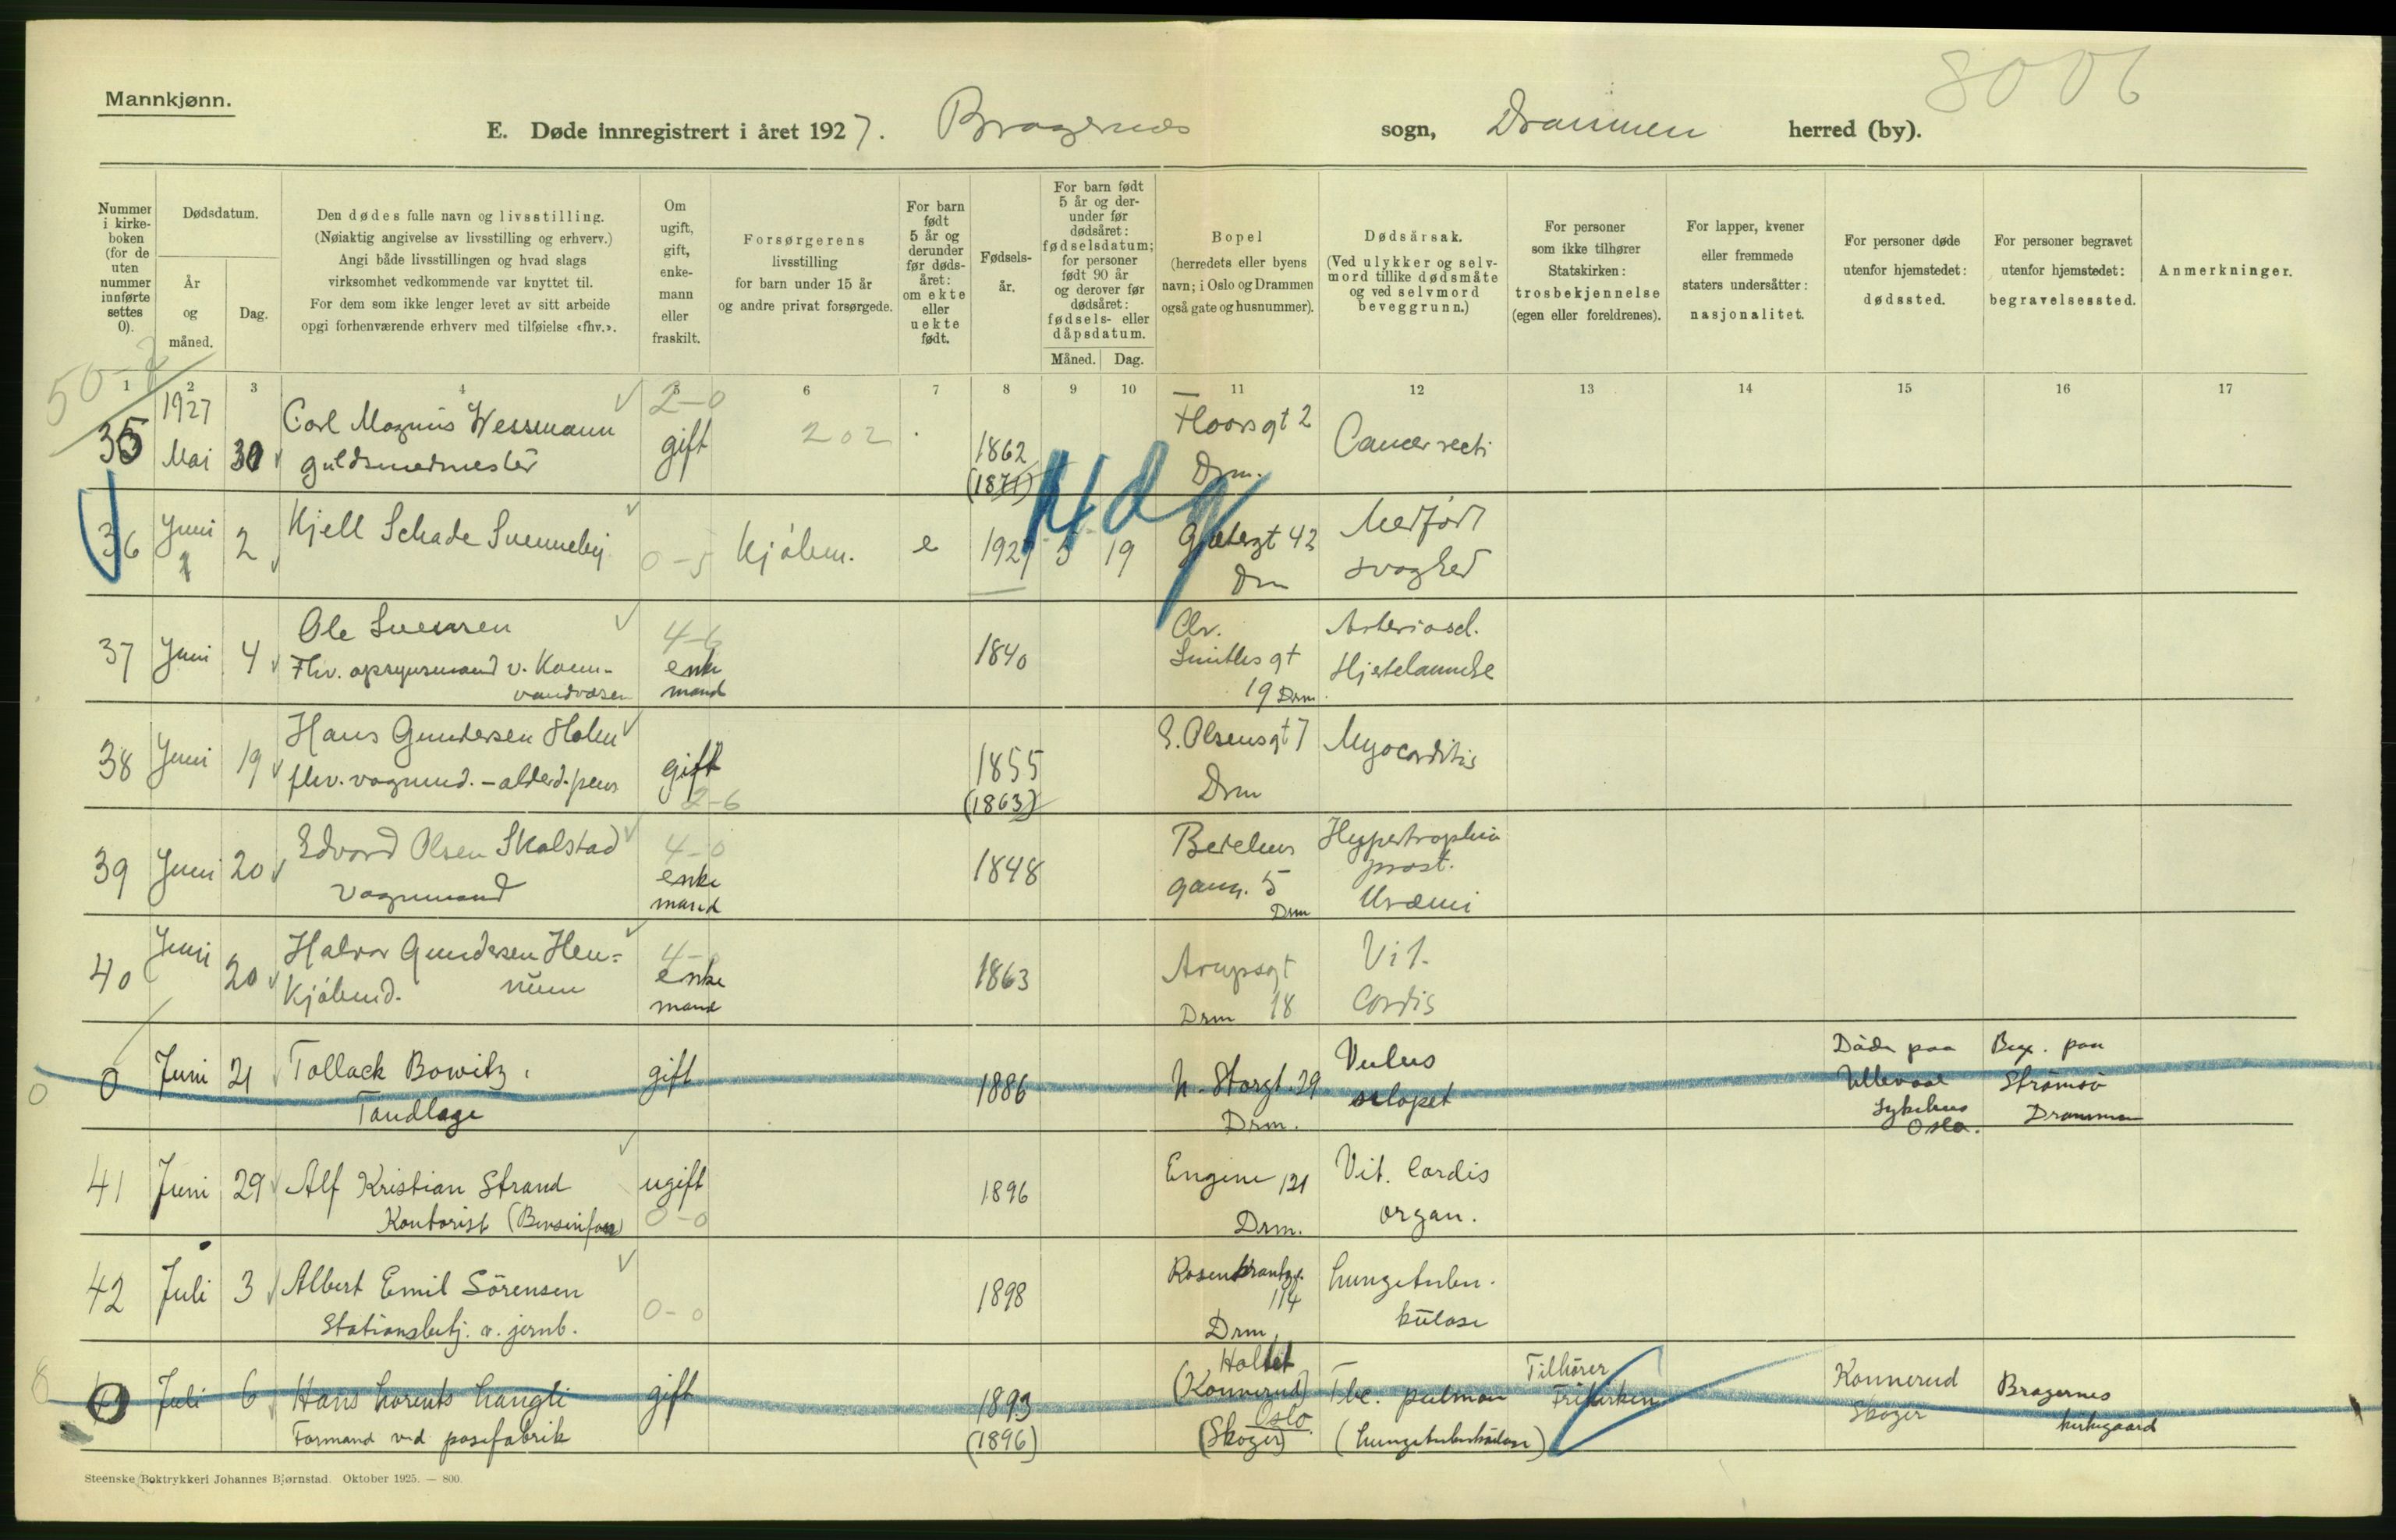 8006
Mannkjønn.
E. Døde innregistrert i året 1927. Bragernes sogn, Drammen herred (by).
Nummer i kirke- boken (for de uten nummer innførte settes 0).
Dødsdatum.
År og måned.
Dag.
Den dødes fulle navn og livsstilling.
(Nøiaktig angivelse av livsstilling og erhverv.)
Angi både livsstillingen og hvad slags
virksomhet vedkommende var knyttet til.
For dem som ikke lenger levet av sitt arbeide
opgi forhenværende erhverv med tilføielse «fhv.».
Om ugift, gift, enke- mann eller fraskilt.
Forsørgerens
livsstilling
for barn under 15 år
og andre privat forsørgede.
For barn født 5 år og derunder før døds- året: om ekte eller uekte født.
Fødsels- år.
For barn født 5 år og der- under før dødsåret: fødselsdatum; for personer født 90 år og derover før dødsåret: fødsels- eller dåpsdatum.
Måned. Dag.
Bopel
(herredets eller byens
navn; i Oslo og Drammen
også gate og husnummer).
Dødsårsak.
(Ved ulykker og selv-
mord tillike dødsmåte
og ved selvmord
beveggrunn.)
For personer
som ikke tilhører
Statskirken:
trosbekjennelse
(egen eller foreldrenes).
For lapper, kvener
eller fremmede
staters undersåtter:
nasjonalitet.
For personer døde
utenfor hjemstedet:
dødssted.
For personer begravet
utenfor hjemstedet:
begravelsessted.
Anmerkninger.
50-2
1 2 3 4 5 6 7 8 9 10 11 12 13 14 15 16 17
1927 2-0
35 Mai 30 Carl Magnus Wessmann gift 202 1862 Floorsgt 2 Cancer recti
guldsmedmester (1871) Drm.
36 Juni 2 Kjell Schade Svenneby 0-5 Kjøbm. e 1927 5 19 Gætergt 42 Medfødt
1 Drm svaghed
37 Juni 4 Ole Svensen 4-6 1840 Chr. Arterioscl.
Fhv. opsynsmand v. Kom- enke Smiths gt Hjertelammelse
vandvæsen mand 19 Drm.
38 Juni 19 Hans Gundersen Holm gift 1855 E. Olsensgt 7 Myocarditis
fhv. vognmd. - alderd. pens 2-6 (1863) Drm
39 Juni 20 Edvard Olsen Skalstad 4-0 1848 Hypertrophia
Vognmand enke gang. 5 prost.
mand Drm Uræmi
40 Juni 20 Halvor Gundersen Hen- 4- 1863 Arupsgt Vit.
Kjøbmd. num enke mand Drm 18 Cordis
0 0 Juni 21 Tollack Bowitz gift 1886 N. Storgt. 29 Vulus Döde paa Begr. paa
Tandlæge Drm. sclopet Ullevaal Strömsö
Sykehus Drammen
Oslo.
41 Juni 29 Alf Kristian Strand ugift 1896 Engene 121 Vit. Cordis
Kontorist 0-0 Drm. organ.
42 Juli 3 Albert Emil Sörensen 1898 Rosenkrantzg. Lungetuber-
Stationsbetj. v. jernb. 0-0 114 kulose
Drm.
8 0 Juli 6 Hans Lorents Langli gift 1893 Holtet Tbc. pulmon Tilhører Konnerud Bragernes
Formand ved posefabrik (1896) (Konnerud) (Lungetuberkulose) Frikirken Skoger kirkegaard
Oslo
(Skoger)
Steenske Boktrykkeri Johannes Bjørnstad. Oktober 1925. — 800.